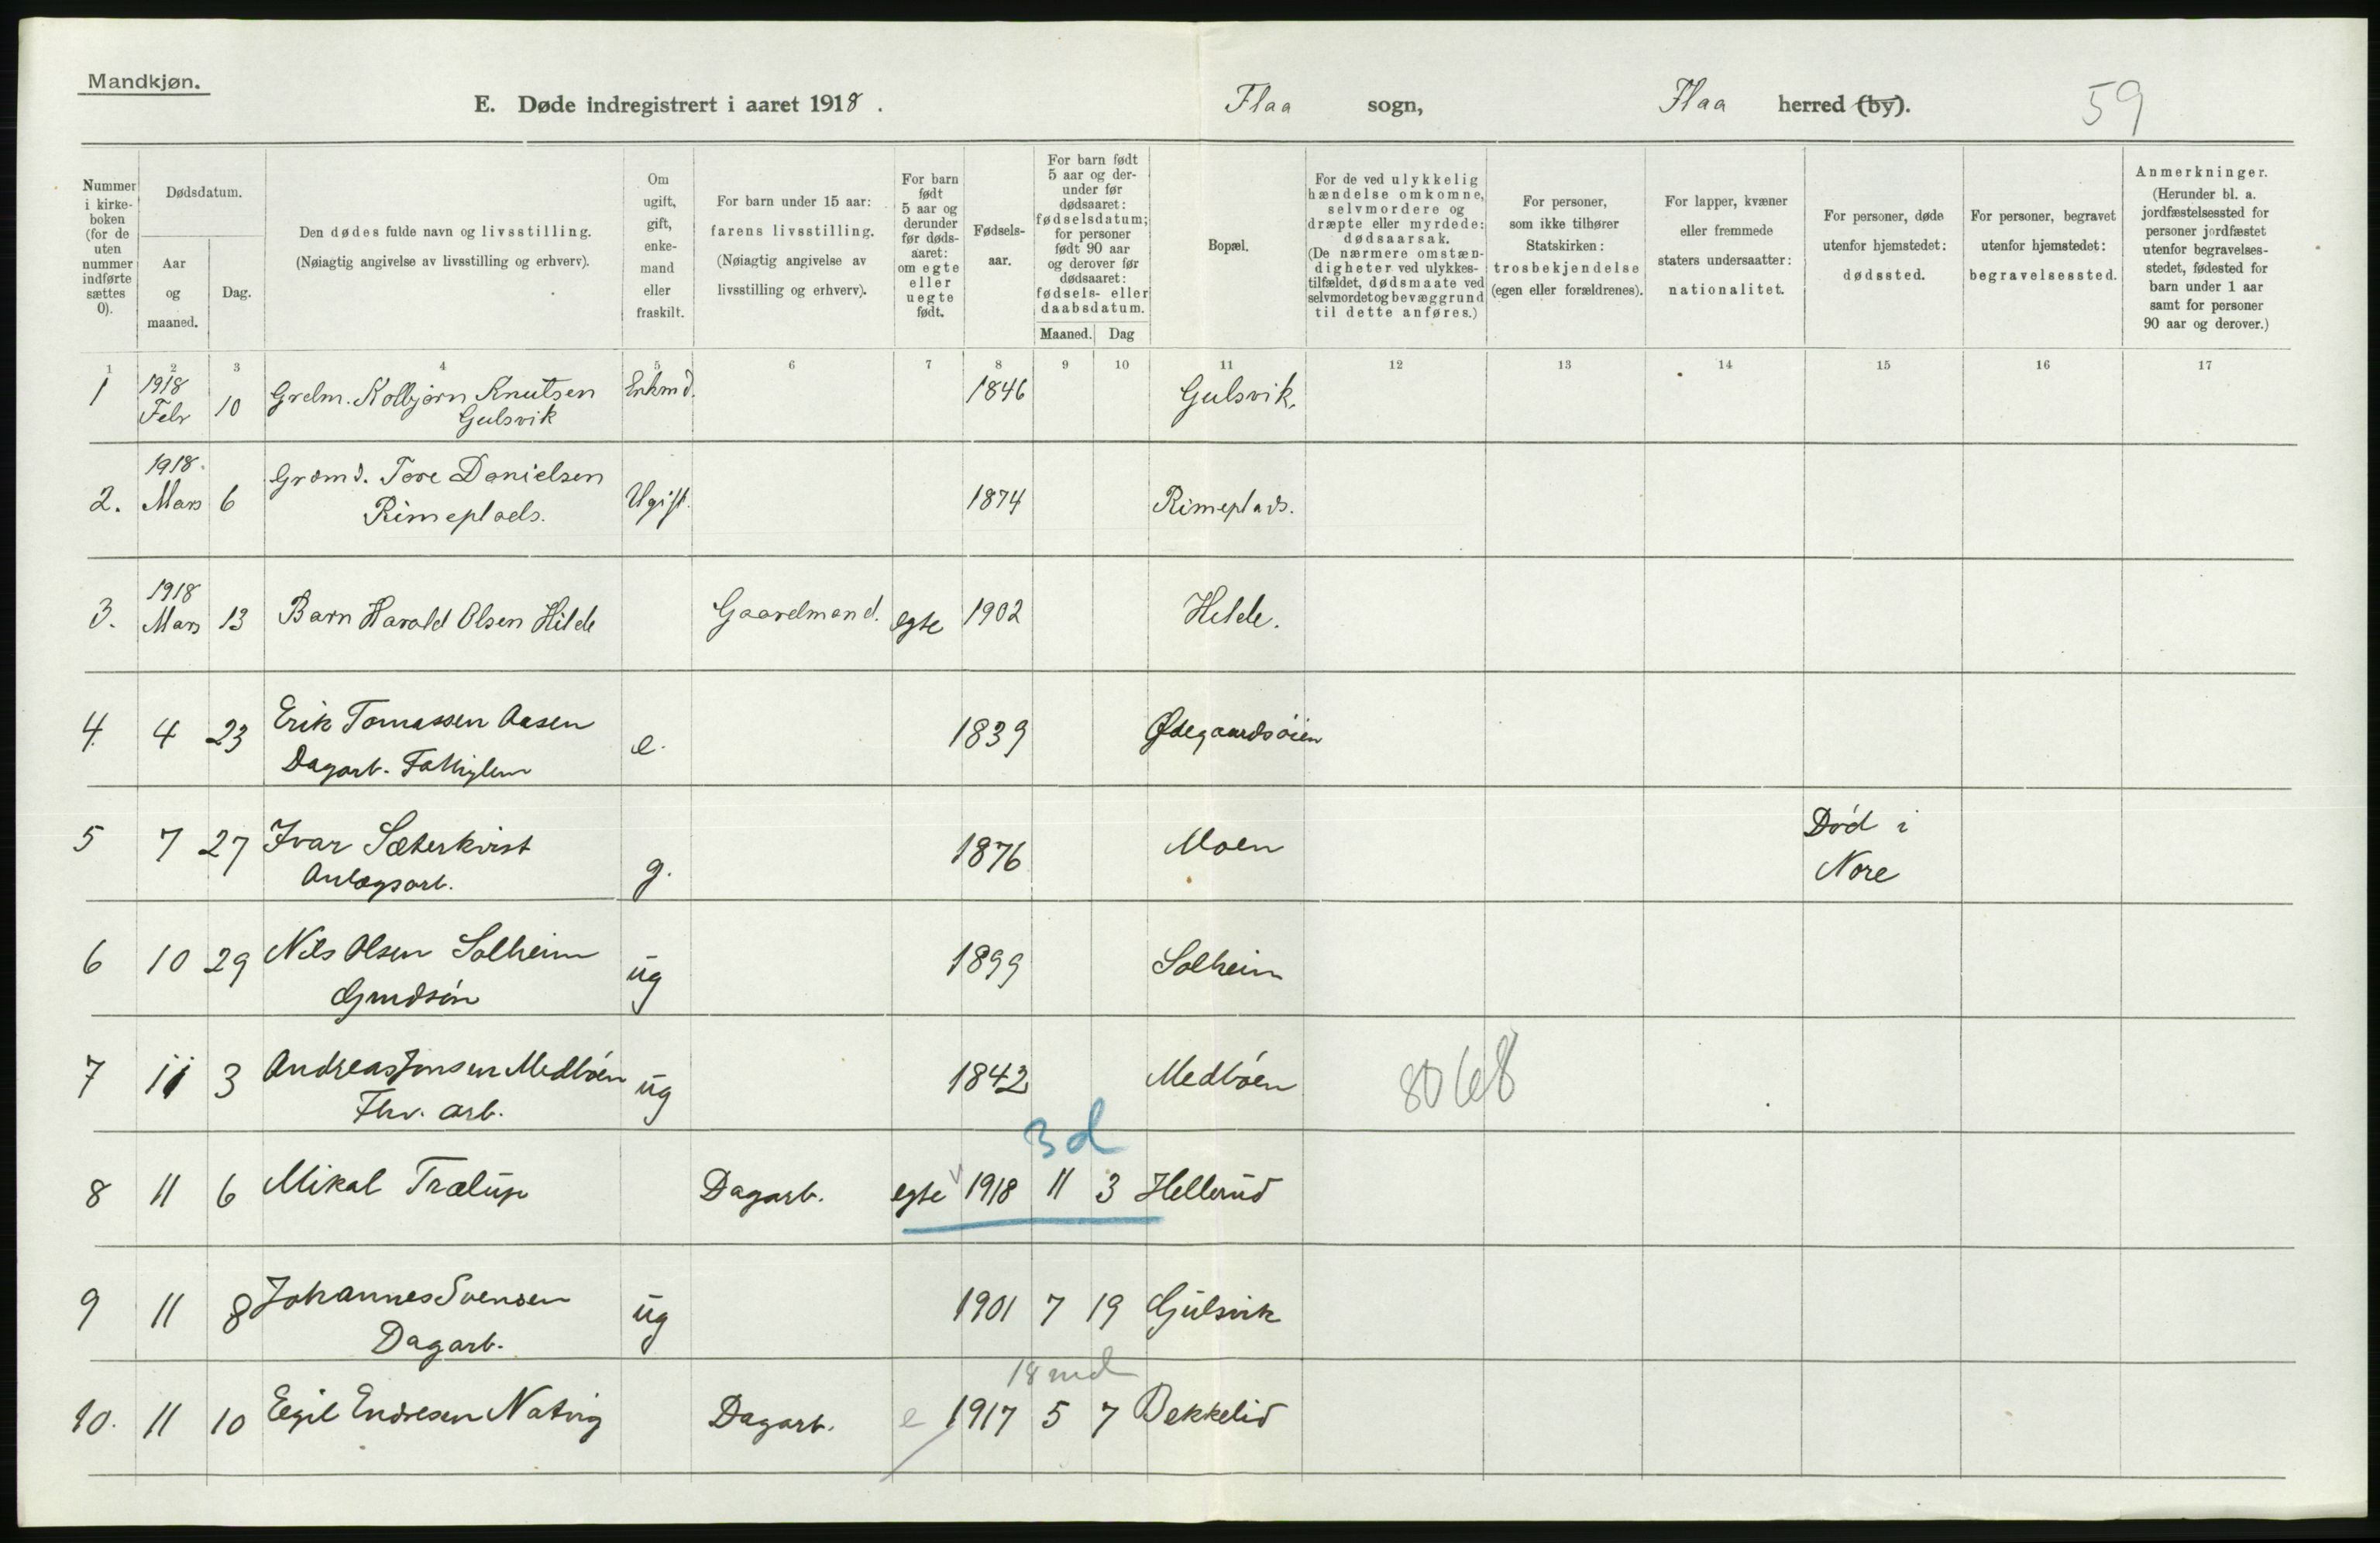 Mandkjøn.
E. Døde indregistrert i aaret 1918.
Flaa sogn, Flaa herred (by).
59
Nummer i kirkeboken (for de uten nummer indførte sættes 0).
Dødsdatum.
Aar og maaned.
Dag.
Den dødes fulde navn og livsstilling.
(Nøiagtig angivelse av livsstilling og erhverv).
Om ugift, gift, enkemand eller fraskilt.
For barn under 15 aar: farens livsstilling.
(Nøiagtig angivelse av livsstilling og erhverv).
For barn født 5 aar og derunder før dødsaaret: om egte eller uegte født.
Fødselsaar.
For barn født 5 aar og derunder før dødsaaret: fødselsdatum; for personer født 90 aar og derover før dødsaaret: fødsels- eller daabsdatum.
Maaned. Dag
Bopæl.
For de ved ulykkelig hændelse omkomne, selvmordere og dræpte eller myrdede: dødsaarsak.
(De nærmere omstændigheter ved ulykkestilfældet, dødsmaate ved selvmordet og bevæggrund til dette anføres.)
For personer, som ikke tilhører Statskirken: trosbekjendelse (egen eller forældrenes).
For lapper, kvæner eller fremmede staters undersaatter: nationalitet.
For personer, døde utenfor hjemstedet: dødssted.
For personer, begravet utenfor hjemstedet: begravelsessted.
Anmerkninger.
(Herunder bl. a. jordfæstelsessted for personer jordfæstet utenfor begravelsesstedet, fødested for barn under 1 aar samt for personer 90 aar og derover.)
1 2 3 4 5 6 7 8 9 10 11 12 13 14 15 16 17
1 1918 Febr 10 Grdm. Kolbjørn Knutsen Enkmd. 1846 Gulsvik.
Gulsvik
2. 1918. Mars 6 Grdmd. Tore Danielsen Ugift. 1874 Rimeplads.
Rimeplads.
3. 1918 Mars 13 Barn Harald Olsen Hilde Gaardmand. egte 1902 Hilde.
4. 4 23 Erik Tomassen Aasen e. 1839 Ødegaardsöien
Dagarb.
5 7 27 Ivar Sæterkvist g. 1876 Moen Död i
Anlægsarb. Nore
6 10 29 Nils Olsen Solheim ug 1899 Solheim
Grndsön
7 11 3 Andreas Jonsen Medböen ug 1842 Medböen 8068
Fhv. arb.
3 d
8 11 6 Mikal Trælup Dagarb. egte 1918 11 3 Hellerud
9 11 8 Johannes Svensen ug 1901 7 19 Gulsvik
Dagarb.
18 md
10. 11 10 Egil Endresen Natvig Dagarb. e 1917 5 7 Bekkelid